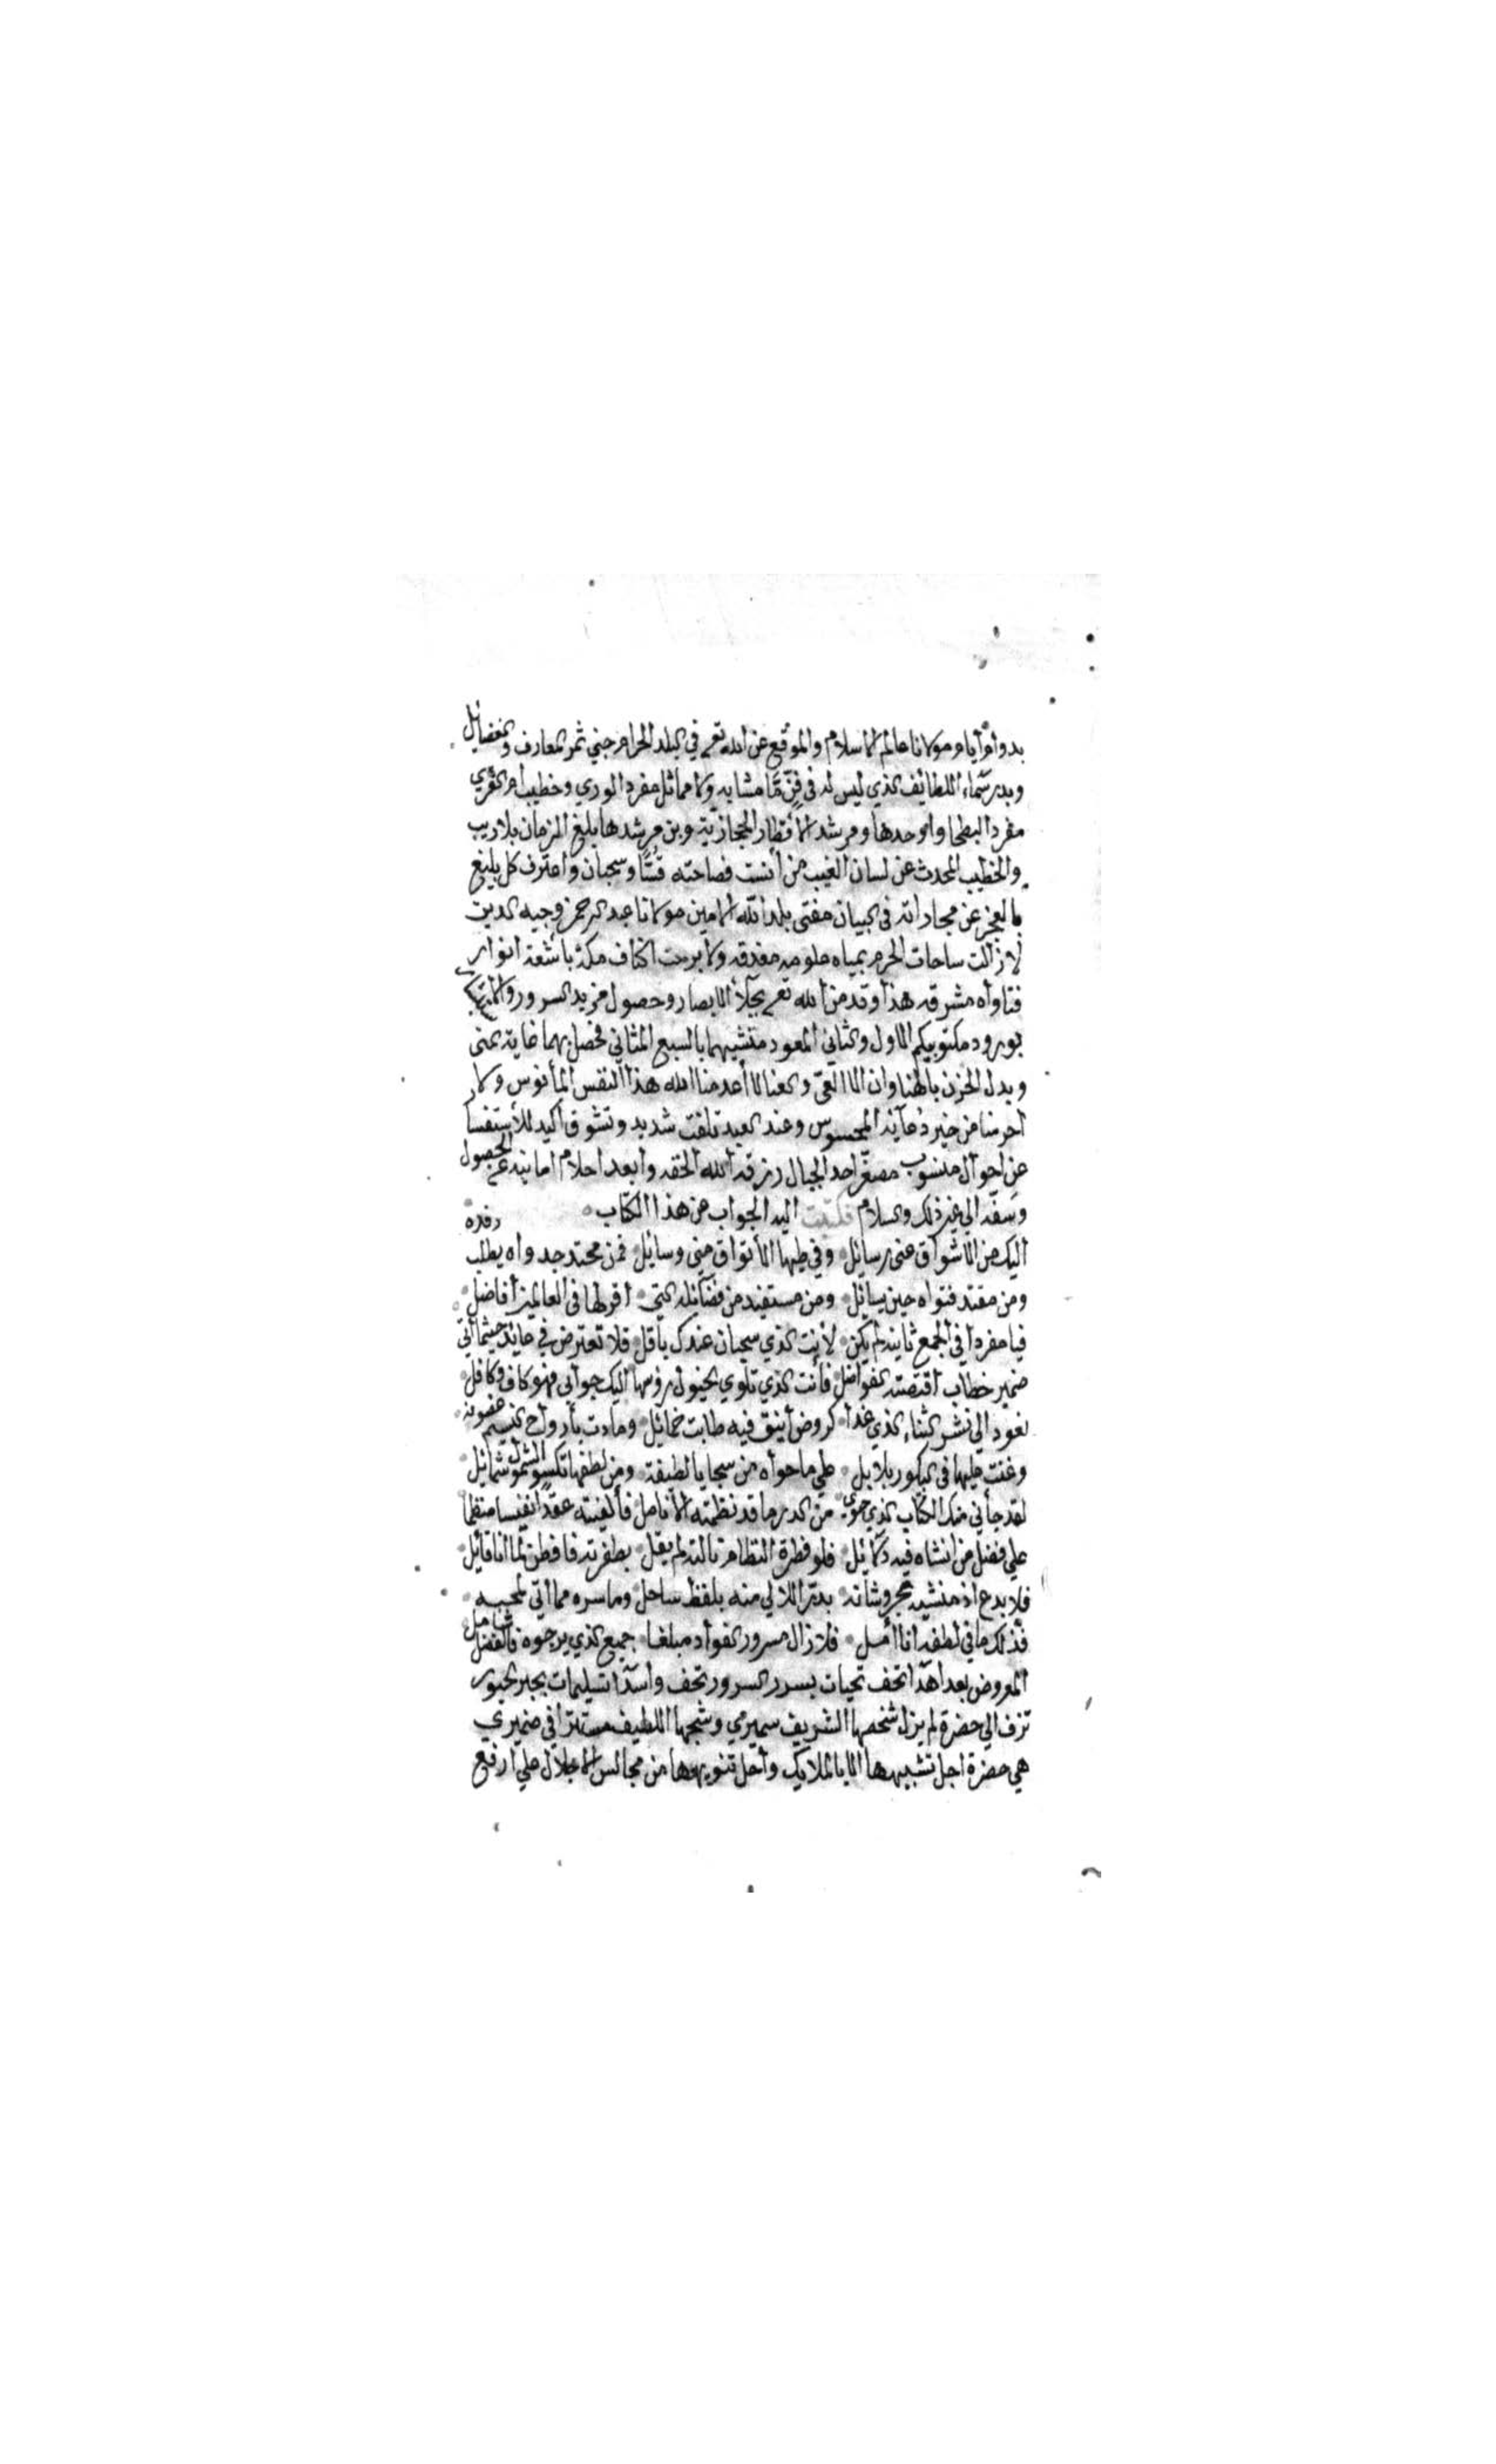 بدوام أيام مولانا عالم الاسلام والموقع عن الله تعم في البلد الحرام جني ثمر المعارف والفضايل
وبدر سماء اللطائف الذي ليس له في فن ما مشابه ولا مماثل مفرد الوري وخطيب ام القري
مفرد البطحا واوحدها ومرشد الأقطار الحجازية وبن مرشدها بليغ الزمان بلاريب
والخطيب المحدث عن لسان الغيب من أنست فصاحته قسًا وسحبان واعترف كل بليغ
بالعجز عن مجاراته في البيان مفتي بلد الله الامين مولانا عبد الرحمن وجيه الدين
لازالت ساحات الحرم بمياه علومه مغدقه ولا برحت اكناف مكة بأشعة انوار
فتاواه مشرقه هذا وقد من الله تعم بجلاء الابصار وحصول مزيد السرور والابتهاج
بورود مكتوبيكم الاول والثاني المعود منشيهما بالسبع المثاني فحصل بهما غاية المنى
وبدل الحزن بالهنا وان الاالغي والعنا لا أعدمنا الله هذا النفس المأنوس ولا
احرمنا من خير دعآيه المحسوس وعند العبد تلفت شديد وتشوق اكيد للأستفسا
عن احوال منسوب مصغر احد الجبال رزقه الله الحقه وأبعد احلام امانيه عن الحصول
وسفه الي غير ذلك والسلام فكتبت اليه الجواب عن هذا الكتاب
اليك من الاشواق عني رسائل وفي طيها الأتواق مني وسايل فمن مجتد جدواه يطلب رفده
ومن مقتد فتواه حين يسايل ومن مستفيد من فضآئله التي أقر لها في العالمين أفاضل
فيا مفردا في الجمع ثانيه لم يكن لأنت الذي سحبان عندك باقل فلا تعترض في عايد حيثما اتي
ضمير خطاب اقتضته الفواضل فأنت الذي تلوي الخيول رؤسها اليك جوابي فهو كاف وكافل
نعود الي نشر الثناء الذي غدا كروض أنيق فيه طابت خمائل ومادت بأرواح النسيم غصونه
وغنت عليها في البكور بلابل علي ما حواه من سجايا لطيفة ومن لطفها تكسو الشمول شمائل
لقد جأني منك الكتاب الذي حوي من الدر ما قد نظمته الأنامل فألفيته عقدًا نفيسا منظما
علي فضل من انشاه فيه دلائل فلو فطرة النظام نالته لم يقل بطفرته فافطن لما انا قائل
فلا بدع اذ منشيه بحر وشانه بدر اللالي منه يلفظ ساحل وما سره مما اتي لمحبه
فذلك ما في لطفه انا آمل فلا زال مسرور الفواد مبلغا جميع الذي يرجوه فالفضل شامل
المعروض بعد اهدا تحف تحيات بسرر السرور تحف وأسدا تسليمات بحبر الحبور
تزف الي حضرة لم يزل شخصها الشريف سميري وشبحها اللطيف مستترا في ضميري
هي حضرة اجل تشبيهها الا بالملايك وأحل تنويهها من مجالس الاجلال علي ارفع